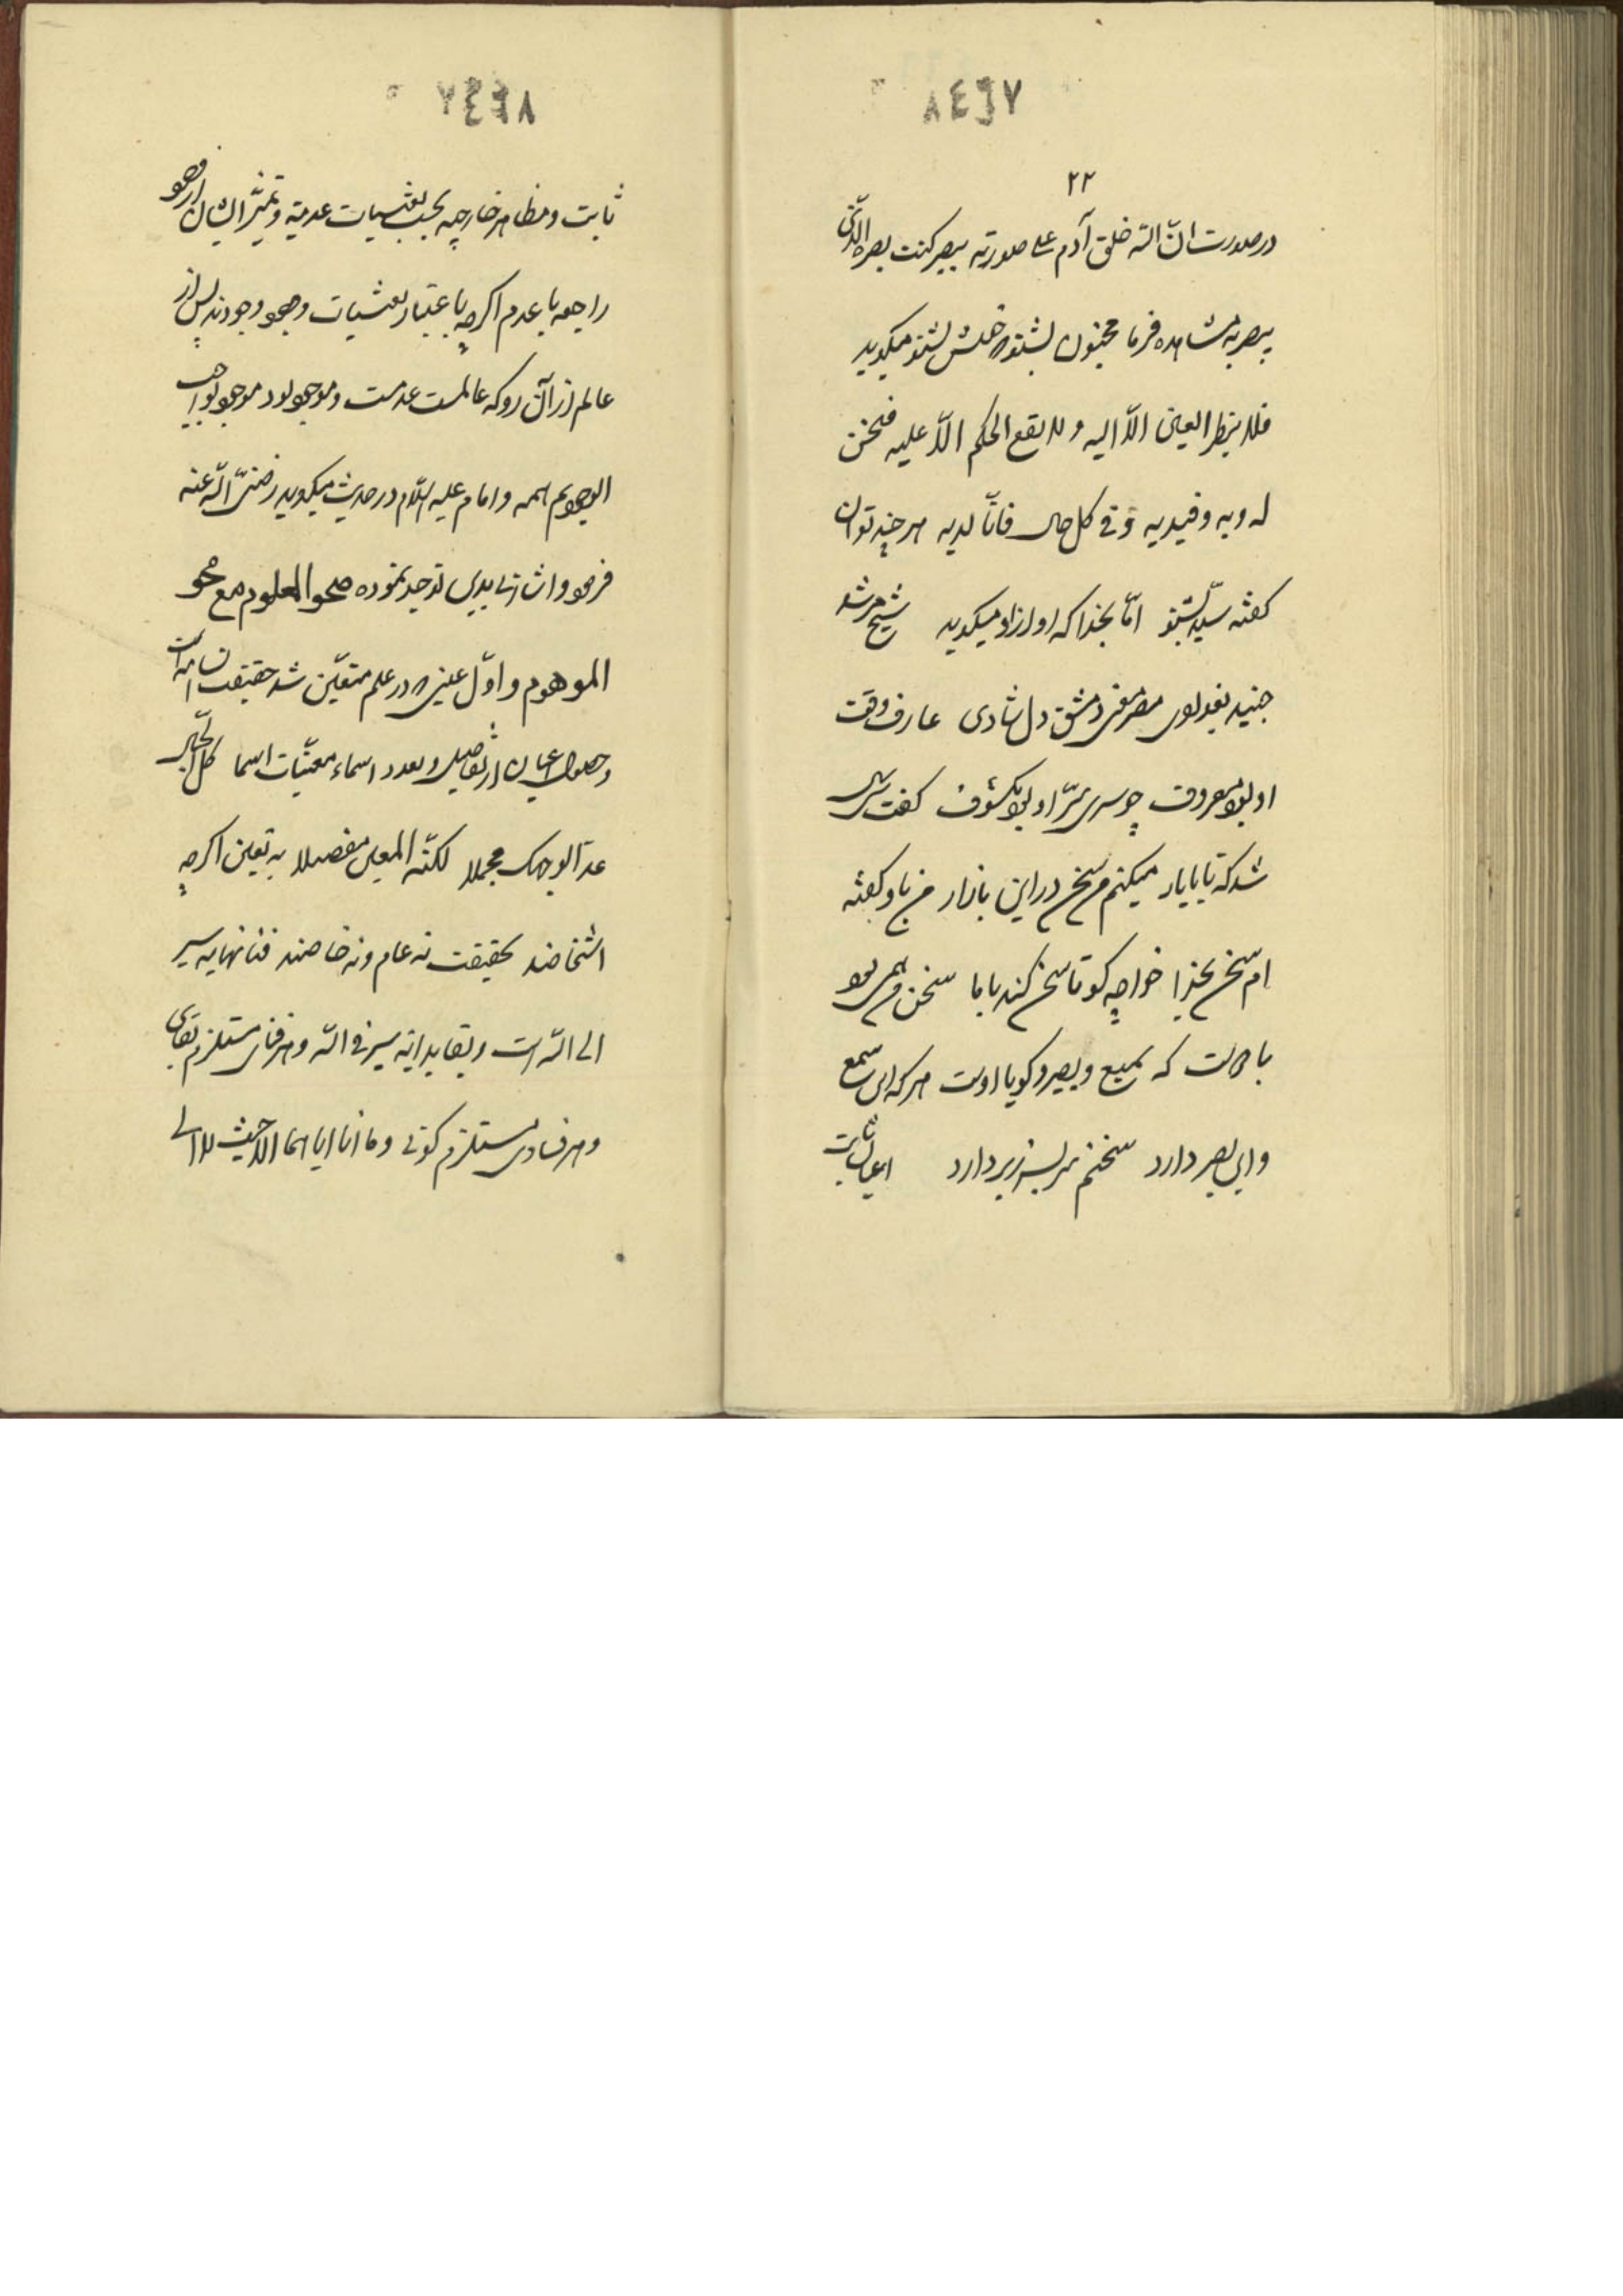 ٨٤٩٧
٢٢
در صورت انّ الله خلق آدم علی صورته ببصر کنت بصره الذی
یبصر به مشاهده فرما مجنون بشنو که خوش بشنو میگوید
فلا ینظر العین الّا الیه و لا یقع الحکم الّا علیه فنحن
له و به و فی یدیه و فی کل حال فانّا لدیه هر چند توان
گفته سیّد بشنو امّا بخدا که او از او میگوید شیخ مرشد
جنید بغدادی مصر معنی دمشق دل شادی عارف وقت
او بود معروف چو سری سرّ او بود مکشوف گفت سی سال
شد که تا با یار میکنم من سخن در این بازار من باو گفته
ام سخن بخدا خواجه گو تا سخن کند با ما سخن من همین بود
با دوست که سمیع و بصیر و گویا اوست هر که این سمع
و این بصر دارد سخنم سر بسر ز بر دارد اعیان ثابت
٧٤٩٨
ثابت و مظاهر خارجیه بحسب تعینات عدمیة و تمیّز ایشان از وجود
راجعه با عدم اگرچه باعتبار تعینات وجود وجودند پس از
عالم از آن رو که عالمست عدمست و موجود بود موجود بواجب
الوجود هم همه و امام علیه السلام در حدیث میگوید رضی الله عنه
فرمود و اشارتی بدین توحید نموده صحو المعلوم مع محو
الموهوم و اوّل عینی که در علم متعیّن شد حقیقت انسانیه است
و حصول اعیان از تفاصیل و تعدد اسماء معینات اسما کل الجمال
غدا لوجهک مجملا لکنّه فی العالمین مفصلا بتعین اگرچه
اشخاصند بحقیقت نه عام و نه خاصند فنا نهایه سیر
الی الله است و بقا بدایه سیر فی الله و هر فنای مستلزم بقای
و هر فسادی مستلزم کونی و ما انا ایاهما الا حیث لا الی